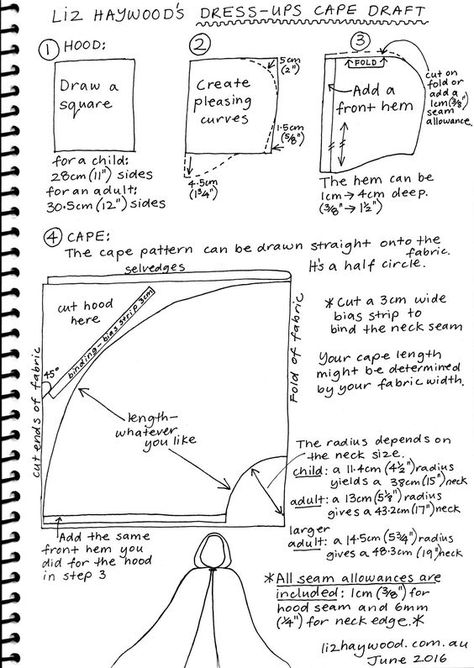 LIZ HAYWOOD'S DRESS-UPS CAPE DRAFT
① HOOD:
Draw a
square
for a child:
28cm (11") sides
for an adult:
30.5cm (12") sides
②
5cm
(2")
Create
pleasing
curves
1.5cm
(5/8")
4.5cm
(1¾")
③
FOLD
Add a
front hem
cut on
fold or
add a
1cm (3/8")
seam
allowance.
The hem can be
1cm → 4cm deep.
(3/8" → 1½")
④ CAPE:
The cape pattern can be drawn straight onto the
fabric.
It's a half circle.
selvedges
cut hood
here
binding-bias strip 3cm
45°
cut ends of fabric
Fold of fabric
length-
whatever
you like
*Cut a 3cm wide
bias strip to
bind the neck seam
Your cape length
might be determined
by your fabric width.
The radius depends on
the neck size.
child: a 11.4cm (4½") radius
yields a 38cm (15") neck
adult: a 13cm (5⅛") radius
gives a 43.2cm (17") neck
larger
adult: a 14.5cm (5¾") radius
gives a 48.3cm (19") neck
Add the same
front hem you
did for the hood
in step 3
*All seam allowances are
included: 1cm (3/8") for
hood seam and 6mm
(¼") for neck edge.*
lizhaywood.com.au
June 2016